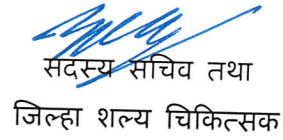 सदस्य सचिव तथा
जिल्हा शल्य चिकित्सक